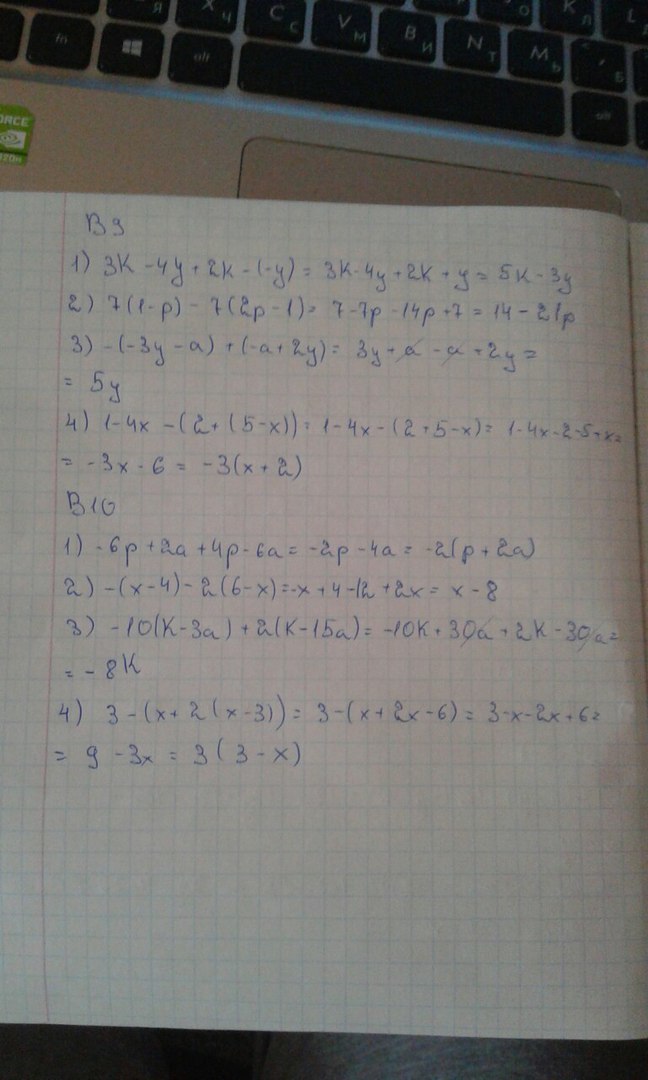 Я Ч С V М В И N Т М Ь К Л О Б L
fn alt alt
FORCE
В9
1) 3k - 4y + 2k - (-y) = 3k - 4y + 2k + y = 5k - 3y
2) 7(1-p) - 7(2p-1) = 7 - 7p - 14p + 7 = 14 - 21p
3) -(-3y - a) + (-a + 2y) = 3y + a - a + 2y =
= 5y
4) 1-4x - (2 + (5-x)) = 1-4x - (2+5-x) = 1-4x-2-5+x=
= -3x - 6 = -3(x+2)
В10
1) -6p + 2a + 4p - 6a = -2p - 4a = -2(p + 2a)
2) -(x-4) - 2(6-x) = -x + 4 - 12 + 2x = x - 8
3) -10(k-3a) + 2(k-15a) = -10k + 30a + 2k - 30a =
= -8k
4) 3 - (x + 2(x-3)) = 3 - (x + 2x - 6) = 3-x-2x+6=
= 9 - 3x = 3(3 - x)